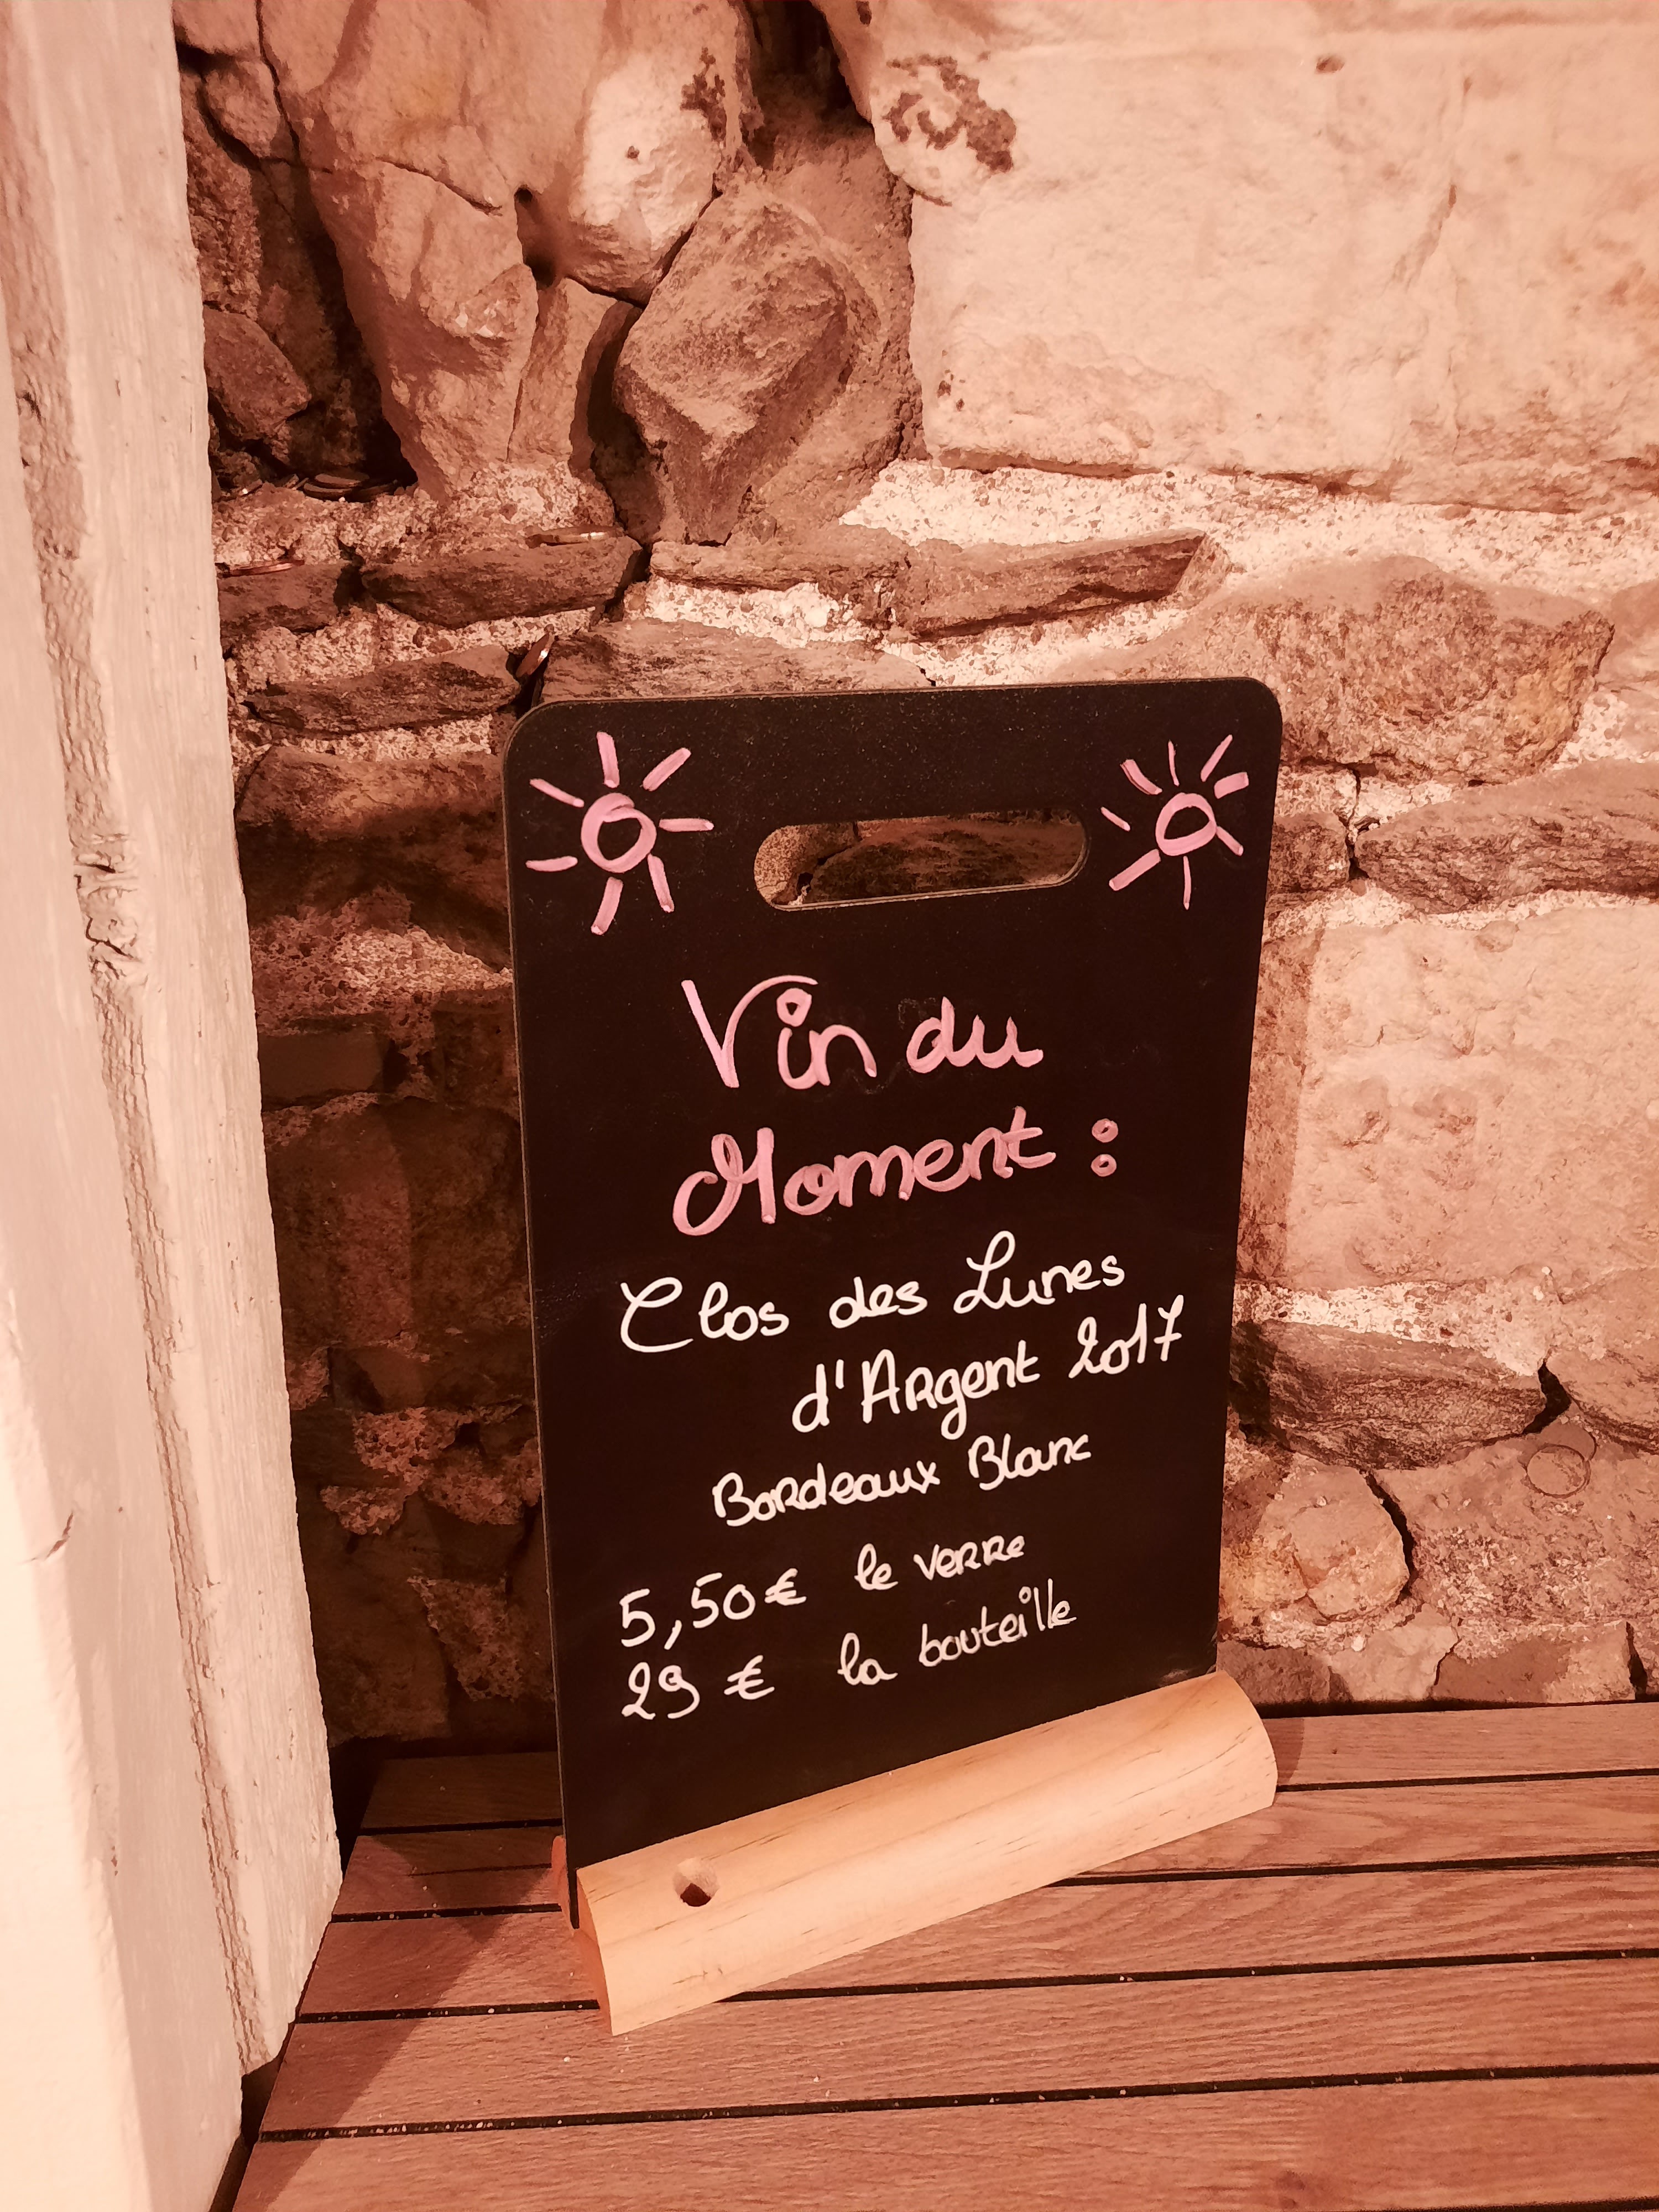 Vin du
Moment :
Clos des Lunes
d'Argent 2017
Bordeaux Blanc
5,50€ le verre
29 € la bouteille